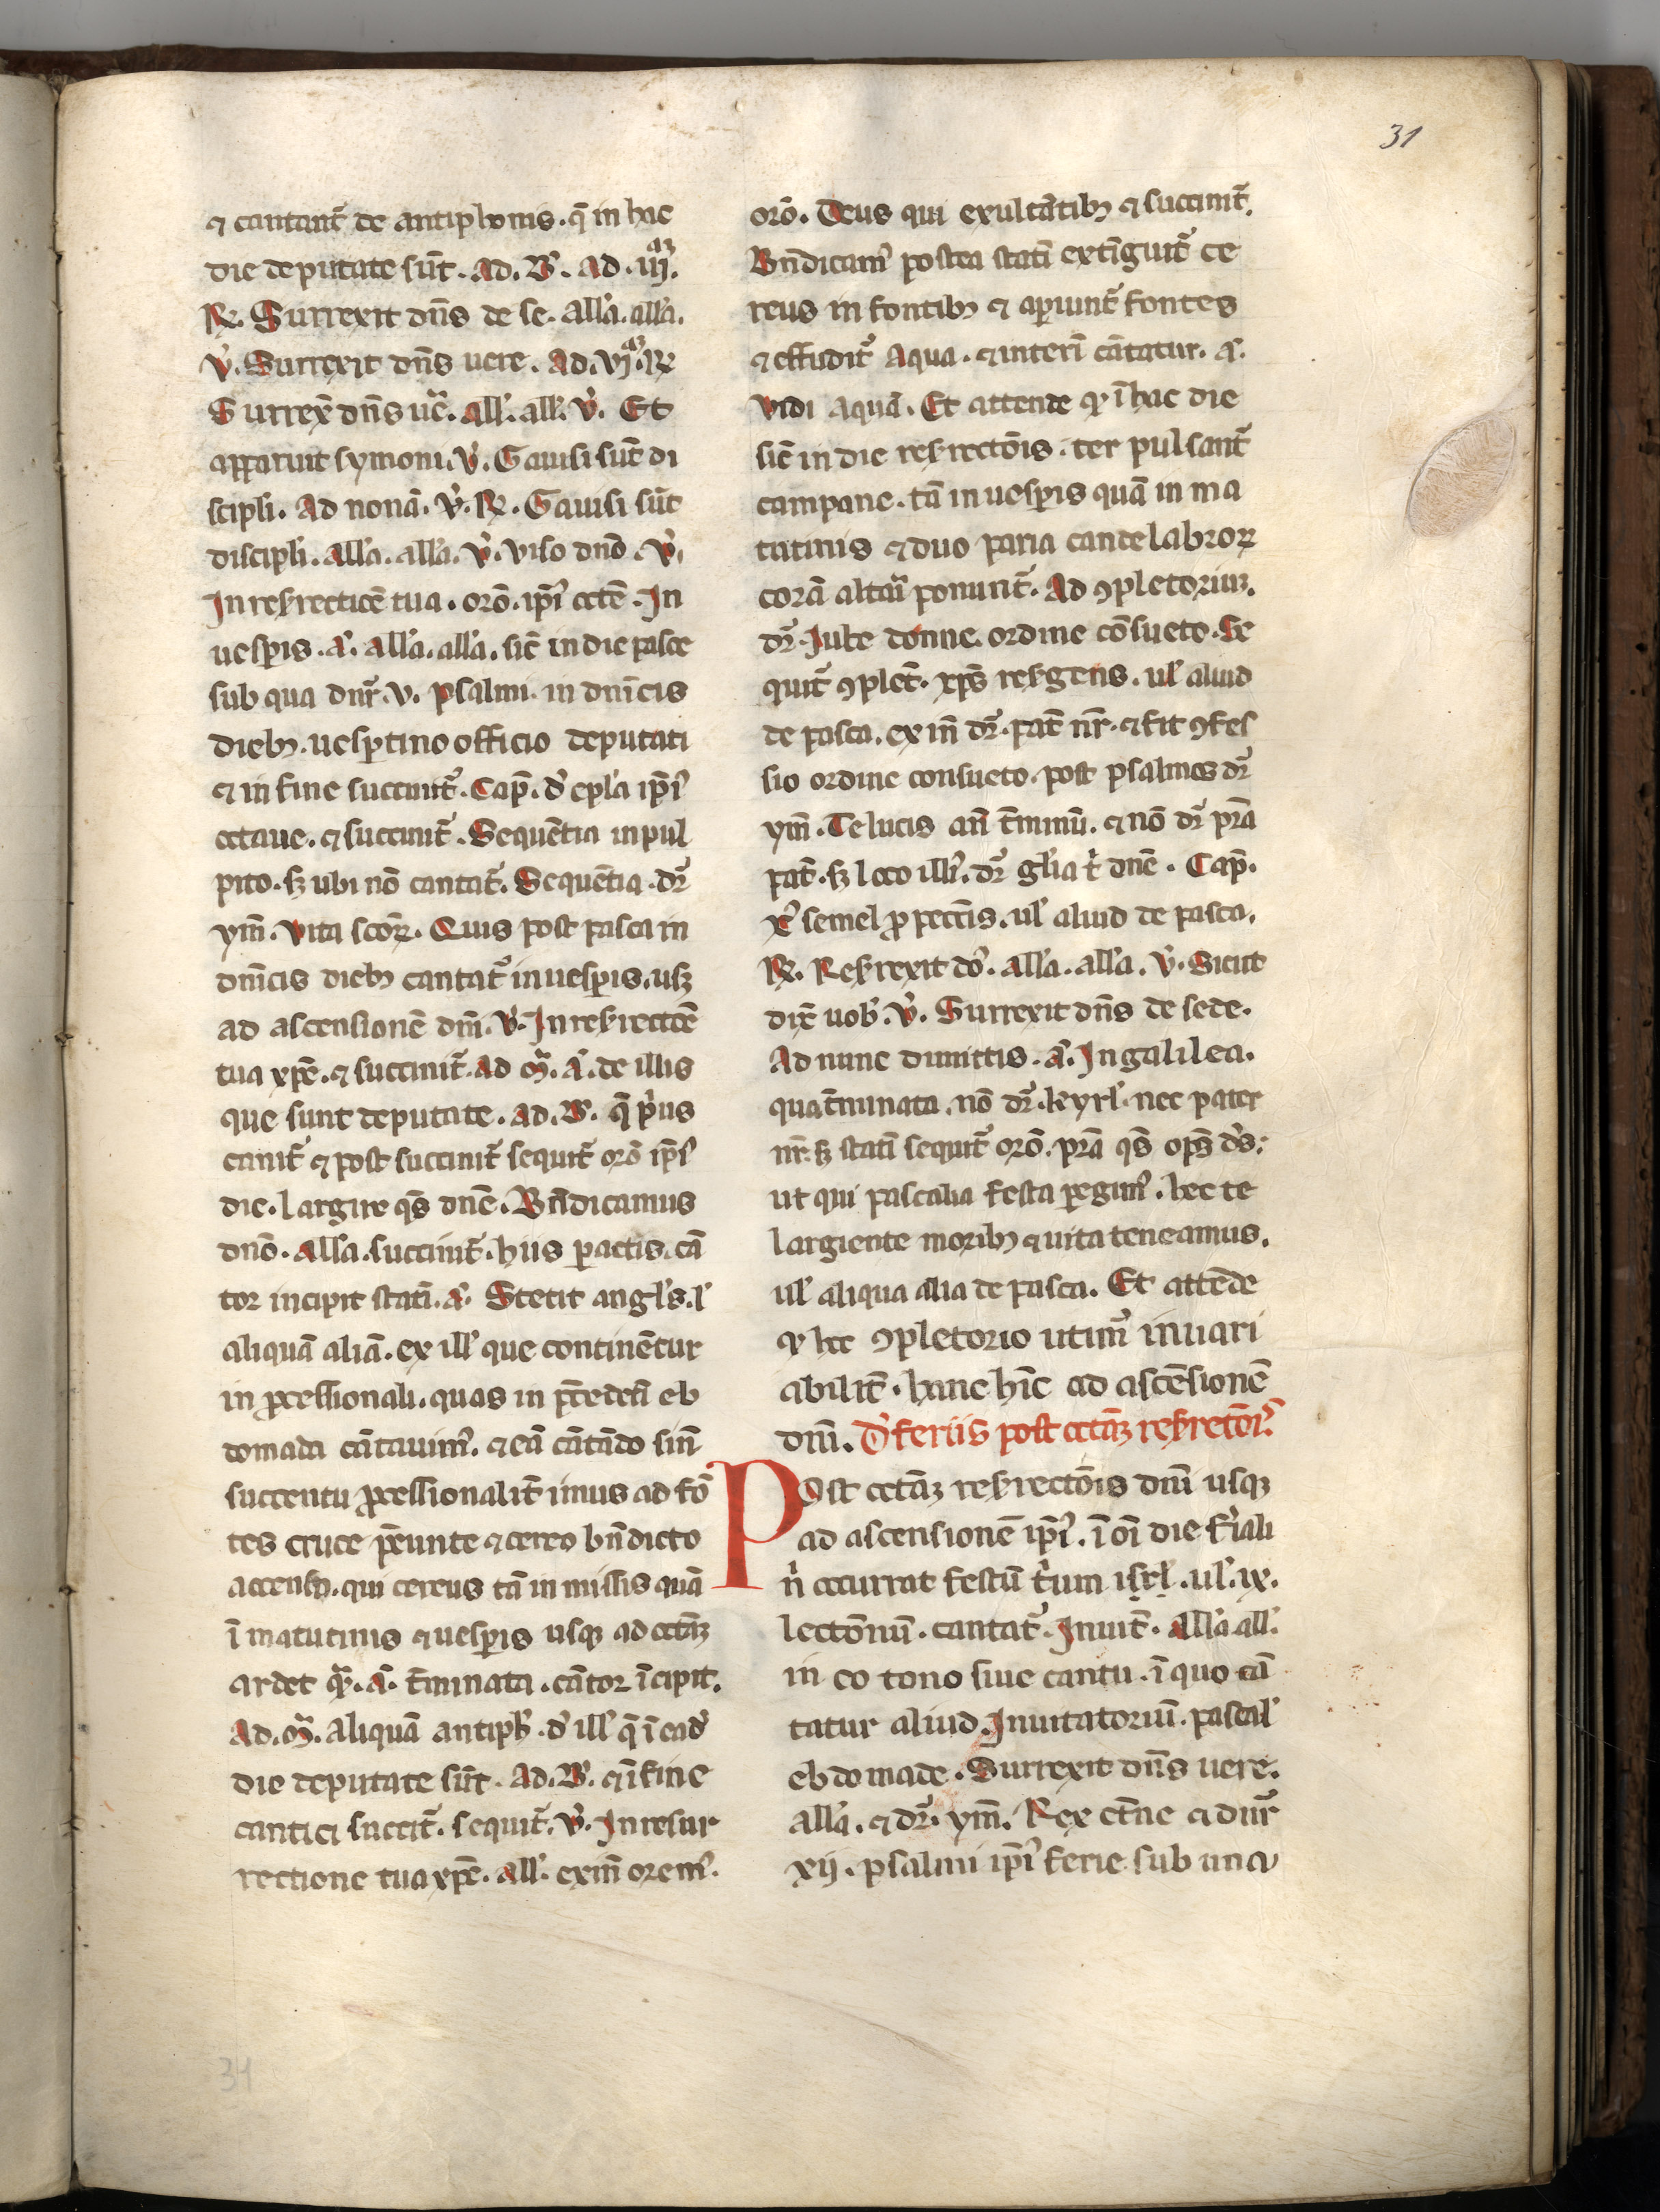 31
⁊ cantant᷑ de antiphonis. q̄ in hac
die deputate sūt. Ad. B᷑. Ad. iij.ᵃᵐ
R̷. Surrexit dn̄s de se. all'a. all'a.
V̓. Surrexit dn̄s uere. Ad. vj.ᵃᵐ R̷
Surrex̄ dn̄s uē. all'. all'. V̓. Et
apparuit symoni. V̓. Gauisi sūt di
scipli. Ad nonā. V̓. R̷. Gauisi sūt
discipl'i. all'a. all'a. V̓. viso dn̄o. V̓.
In resʳrectiōe tua. orō. ip̄i octē. In
uesp̱is. a᷑. all'a. all'a. sic̄ in die pasce
sub qua dn̄r᷑. v. psalmi. in dn̄icis
dieb3. uesp̱tino officio deputati
⁊ in fine succinit᷑. Cap̄. d̓ ep̄l'a ip̄i᷒
octaue. ⁊ succinit᷑. Sequētia in pul
pito. s3 ubi nō cantat᷑. Sequētia. dr᷑
ym̄. Vita scōꝝ. Quis post pasca in
dn̄icis dieb3 cantat᷑ in uesp̱is. usq3
ad ascensionē dn̄i. V̓. In resʳrectiōe
tua xp̄e. ⁊ succinit᷑. Ad m̄. a᷑. de illis
que sunt deputate. ad. B᷑. q̄ p̓us
canit᷑ ⁊ post succinit᷑ sequit᷑ orō ip̄i᷒
die. largire q̄s dn̄e. Bn̄dicamus
dn̄o. all'a. succinit᷑. hiis p̱actis. cā
tor incipit statī. a᷑. Stetit angl's. l'
aliquā aliā. ex ill' que continētur
in ꝓcessionali. quas in p̄cedetī eb
domada cātauim᷒. ⁊ eā cātādo sin̄
succentu ꝓcessionalit̄ imus ad fō
tes cruce p̄eunte ⁊ cereo bn̄dicto
accenso. qui cereus tā in missis quā
ī matutinis ⁊ uesp̱is usq3 ad octāȝ
ardet q̄. a᷑. t̄minata. cātor īcipit.
Ad. m̄. aliquā antiph̄. d̓ ill' q̄ ī ead̓
die deputate sūt. Ad. B᷑. ⁊ ī fine
cantici succīt᷑. sequit᷑. V̓. In resur
rectione tua xp̄e. all'. exin̄ orem᷒.
orō. Deus qui exultātib3 ⁊ succinit᷑.
Bn̄dicam᷒ postea statī extīguit᷑ ce
reus in fontib3 ⁊ ap̱iunt᷑ fontes
⁊ effudit᷑ Aqua. ⁊ interī cātatur. a᷑.
Vidi aquā. Et attende ꝙ ī hac die
sic̄ in die resʳrectōis. ter pulsant᷑
campane. tā in uesp̱is quā in ma
tutinis ⁊ duo paria candelabroꝝ
corā altari ponunt᷑. Ad ꝯpletoriuȝ.
dr᷑. Iube domne. ordine cōsueto. Se
quit᷑ ꝯplet̄. xp̄s resʳgens. ul' aliud
de pasca. exin̄ dr᷑. pat̄ nr̄. ⁊ fit ꝯfes
sio ordine consueto. post psalmos dr᷑
ym̄. Te lucis an̄ t̄minū. ⁊ nō dr᷑ p̄ra
pat̄. s3 loco illi᷒. dr᷑ gl'ia t̓ dn̄e. Cap̄.
xᶜ semel ꝓ peccīs. ul' aliud de pasca.
R̷. Resʳrexit do᷒. all'a. all'a. V̓. Sicut
dix̄ uob᷒. V̓. Surrexit dn̄s de sede.
Ad nunc dimittis. a᷑. In galilea.
qua t̄minata. nō dr᷑. kyrl'. nec pater
nr̄. s3 statī sequit᷑ orō. p̄ra q̄s op̄s d̓s:
ut qui pascalia festa p̱egim᷒. hec te
largiente morib3 ⁊ uita teneamus.
ul' aliqua alia de pasca. Et attēde
ꝙ hec ꝯpletorio utim᷒ in uari
abilit̄. hanc hīc ad ascēsionē
dn̄i. D̓ feriis post octāȝ resʳrectōi᷒.
Post octāȝ resʳrectōis dn̄i usq3
ad ascensionē ip̄i᷒. ī oī die f̓iali
n̓ occurrat festū t̓um isrl'. ul'. ix.
lectōnū. cantat᷑. Inuit̄. all'a. all'.
in eo tono siue cantu. ī quo cā
tatur aliud. Inuitatoriū. pascal'
ebdomade. Surrexit dn̄s uere.
all'a. ⁊ dr᷑. ym̄. Rex et̄ne ⁊ dn̄r᷑
xij. psalmi ip̄i᷒ ferie sub una
34